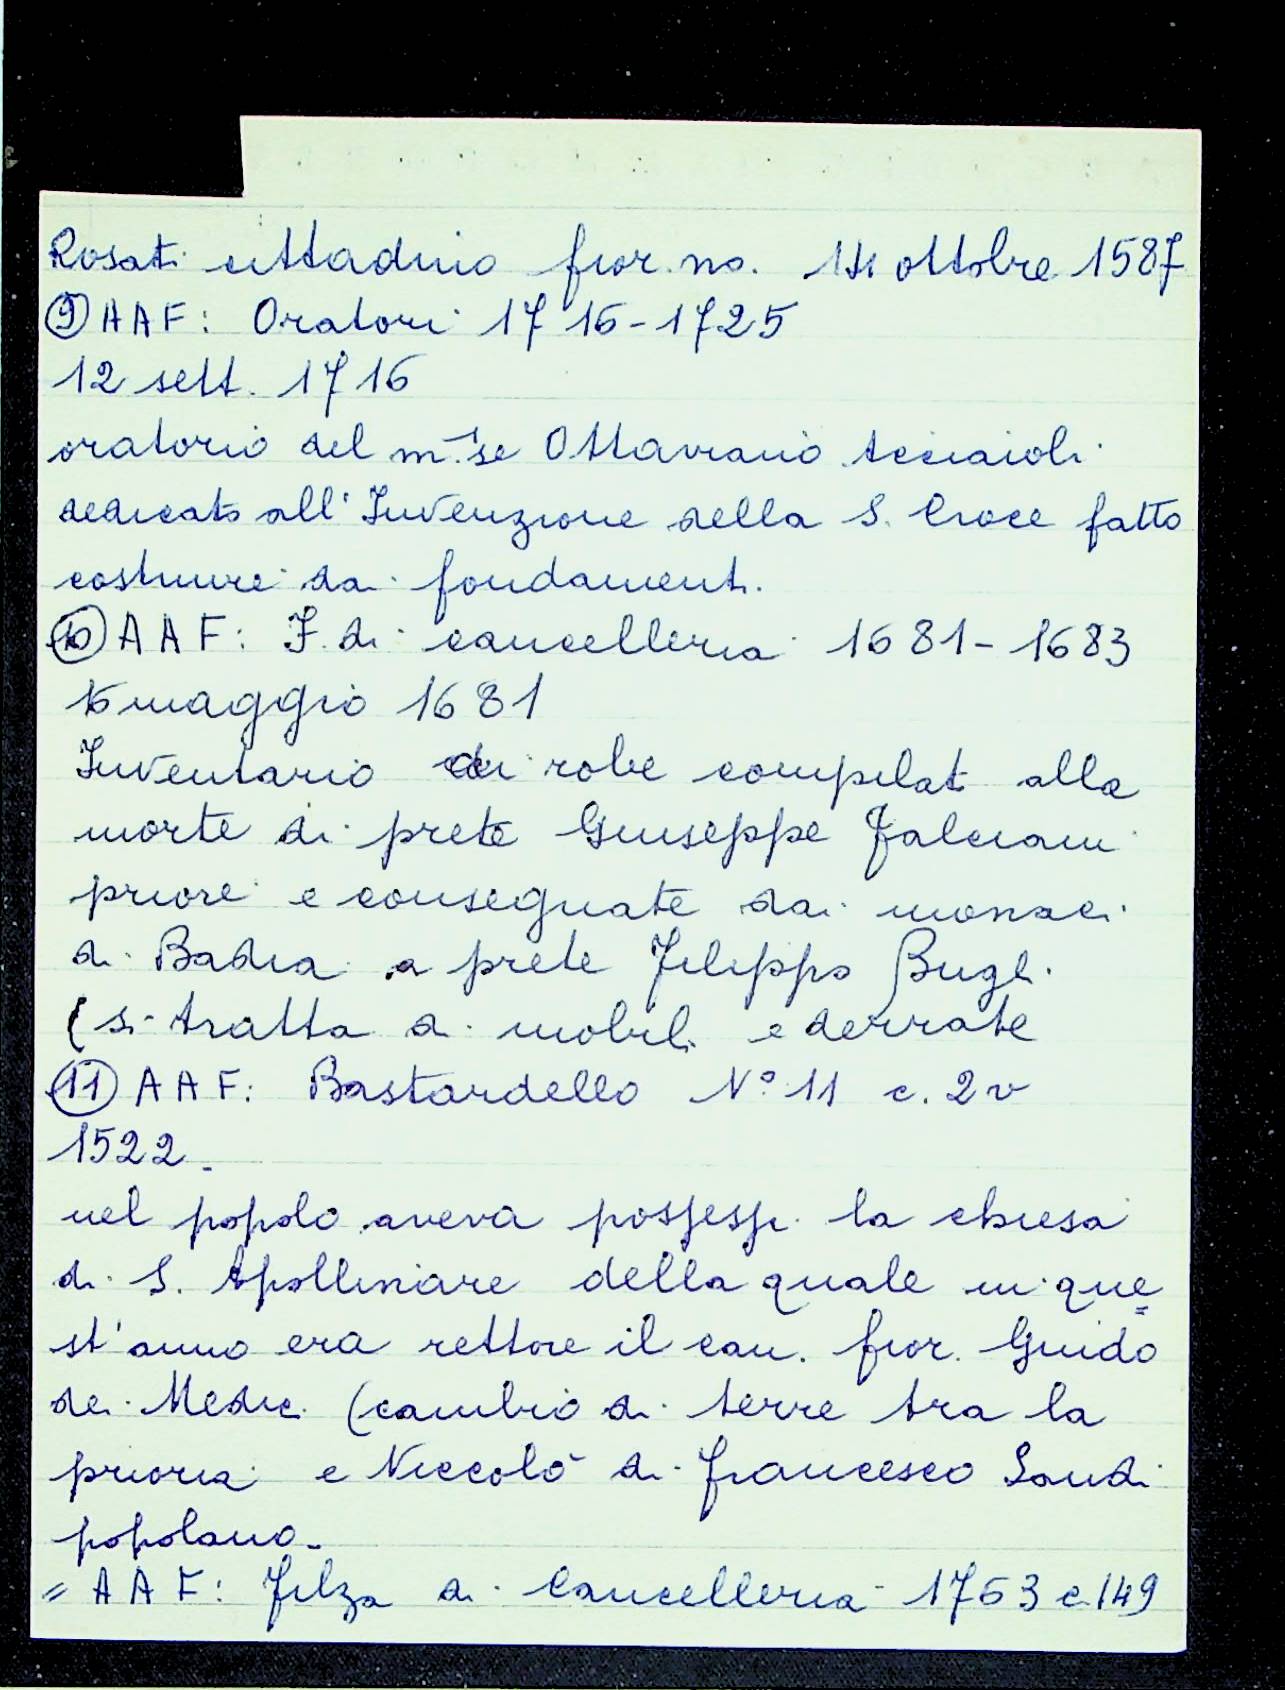 Rosati cittadino fior.no. 14 ottobre 1587
⑨ AAF: Oratori 1716-1725
12 sett. 1716
oratorio del m.se Ottaviano Acciaioli
dedicato all'Invenzione della S. Croce fatto
costruire dai fondamenti.
⑩ AAF: F. di cancelleria 1681-1683
16 maggio 1681
Inventario di robe compilato alla
morte di prete Giuseppe Falciani
priore e consegnate dai monaci
di Badia a prete Filippo Bugli
(si tratta di mobili e derrate
⑪ AAF: Bastardello N° 11 c. 2v
1522.
nel popolo aveva possessi la chiesa
di S. Apollinare della quale in que=
st'anno era rettore il can. fior. Guido
dei Medici (cambio di terre tra la
prioria e Niccolò di Francesco Landi
popolano.
= AAF: Filza di Cancelleria 1763 c. 149